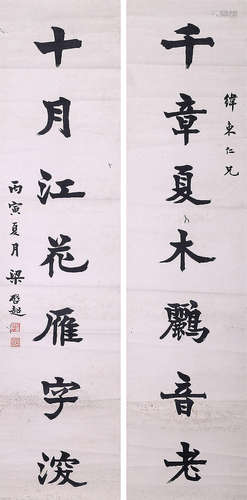 千章夏木鸝音老
緯東仁兄
十月江花雁字
丙寅夏月 梁啓超